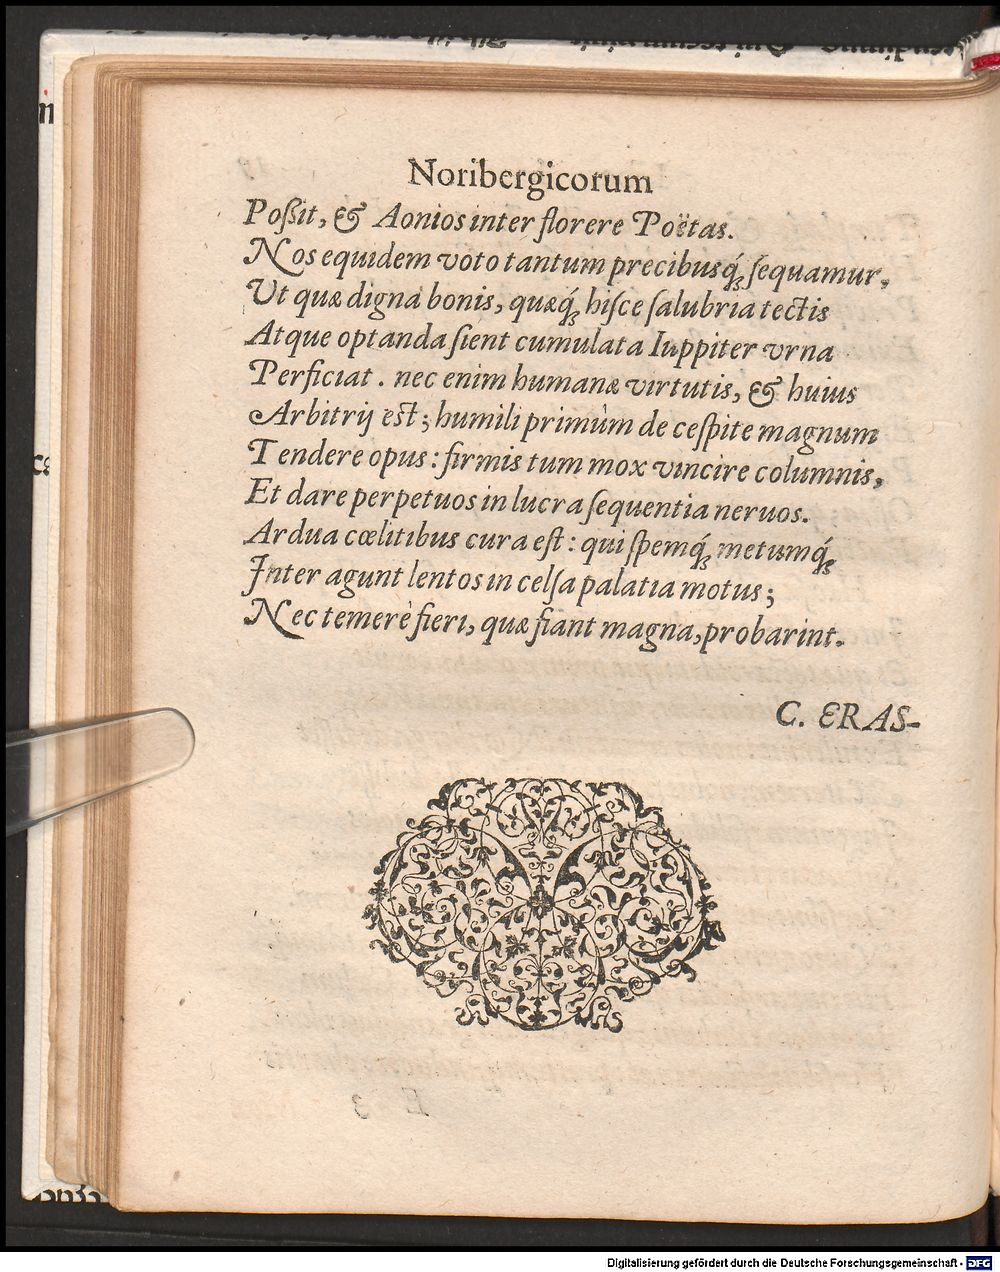 Noribergicorum
Poßit, & Aonios inter florere Poëtas.
Nos equidem voto tantum precibusq́; ſequamur,
Ut quæ digna bonis, quæq́; hiſce ſalubria tectis
Atque optanda ſient cumulata Iuppiter vrna
Perficiat. nec enim humanæ virtutis, & huius
Arbitrij est; humili primùm de ceſpite magnum
Tendere opus: firmis tum mox vincire columnis,
Et dare perpetuos in lucra ſequentia neruos.
Ardua cœlitibus cura eſt: qui ſpemq́; metumq́;
Inter agunt lentos in celſa palatia motus;
Nec temerè fieri, quæ fiant magna, probarint.
C. ERAS-
Digitalisierung gefördert durch die Deutsche Forschungsgemeinschaft - DFG